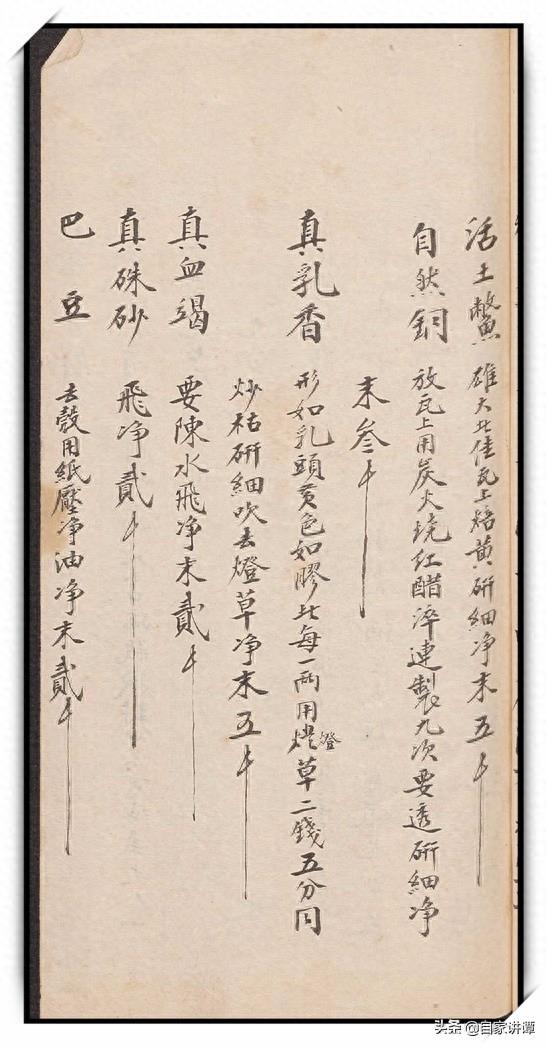 活土鱉 雄大者佳瓦上焙黄研細净末五千
自然銅 放瓦上用炭火烧红醋淬連製九次要透研細净
末叁千
真乳香 形如乳頭黄色如膠者每一兩用燈草二錢五分同
炒枯研細吹去燈草净末五千
真血竭 要陳水飛净末貳千
真硃砂 飛净貳千
巴豆 去殼用紙壓净油净末貳千
头条 @自家讲谭